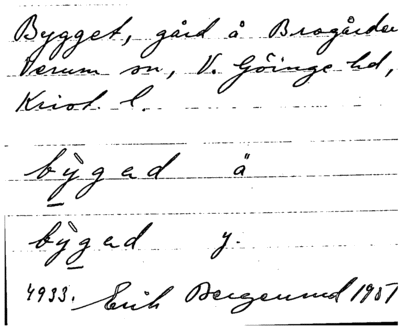 Bygget, gård å Brogården
Verum sn, V. Göinge hd,
Krist. l.
bỳgad ä
bỳgad y.
4933. Erik Bergerund 1951